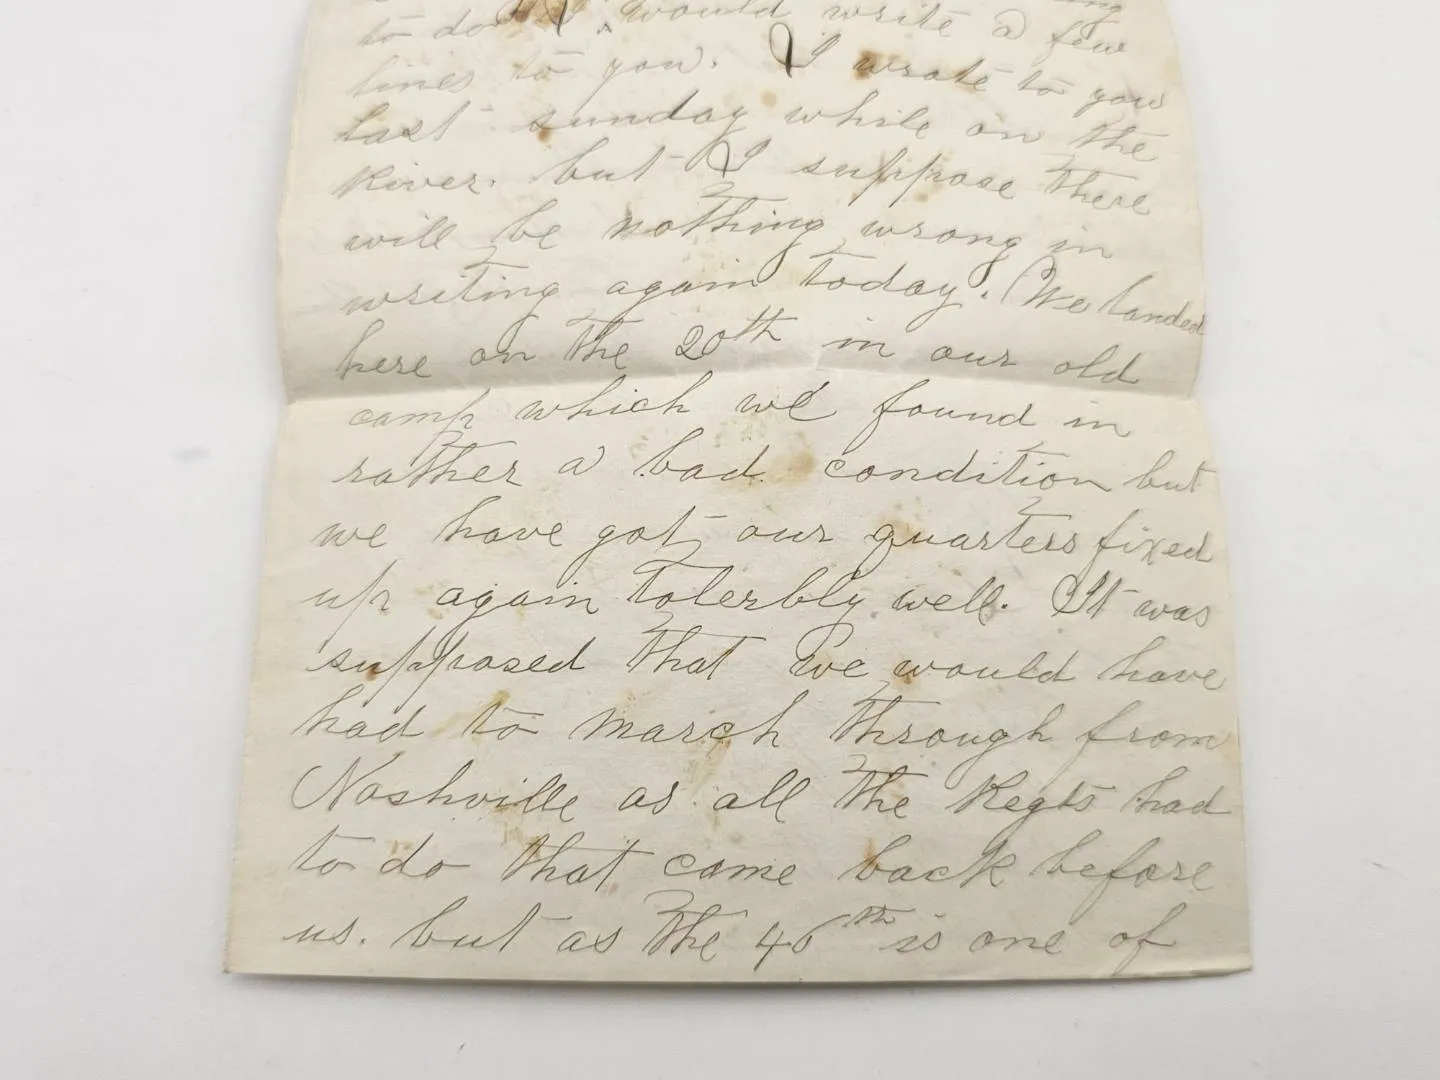 to do I would write a few
lines to you. I wrote to you
last sunday while on the
River. but I suppose there
will be nothing wrong in
writing again today. We landed
here on the 20th in our old
camp which we found in
rather a bad condition but
we have got our quarters fixed
up again tolerbly well. It was
supposed that we would have
had to march through from
Nashville as all the Regts had
to do that came back before
us. but as the 46th is one of